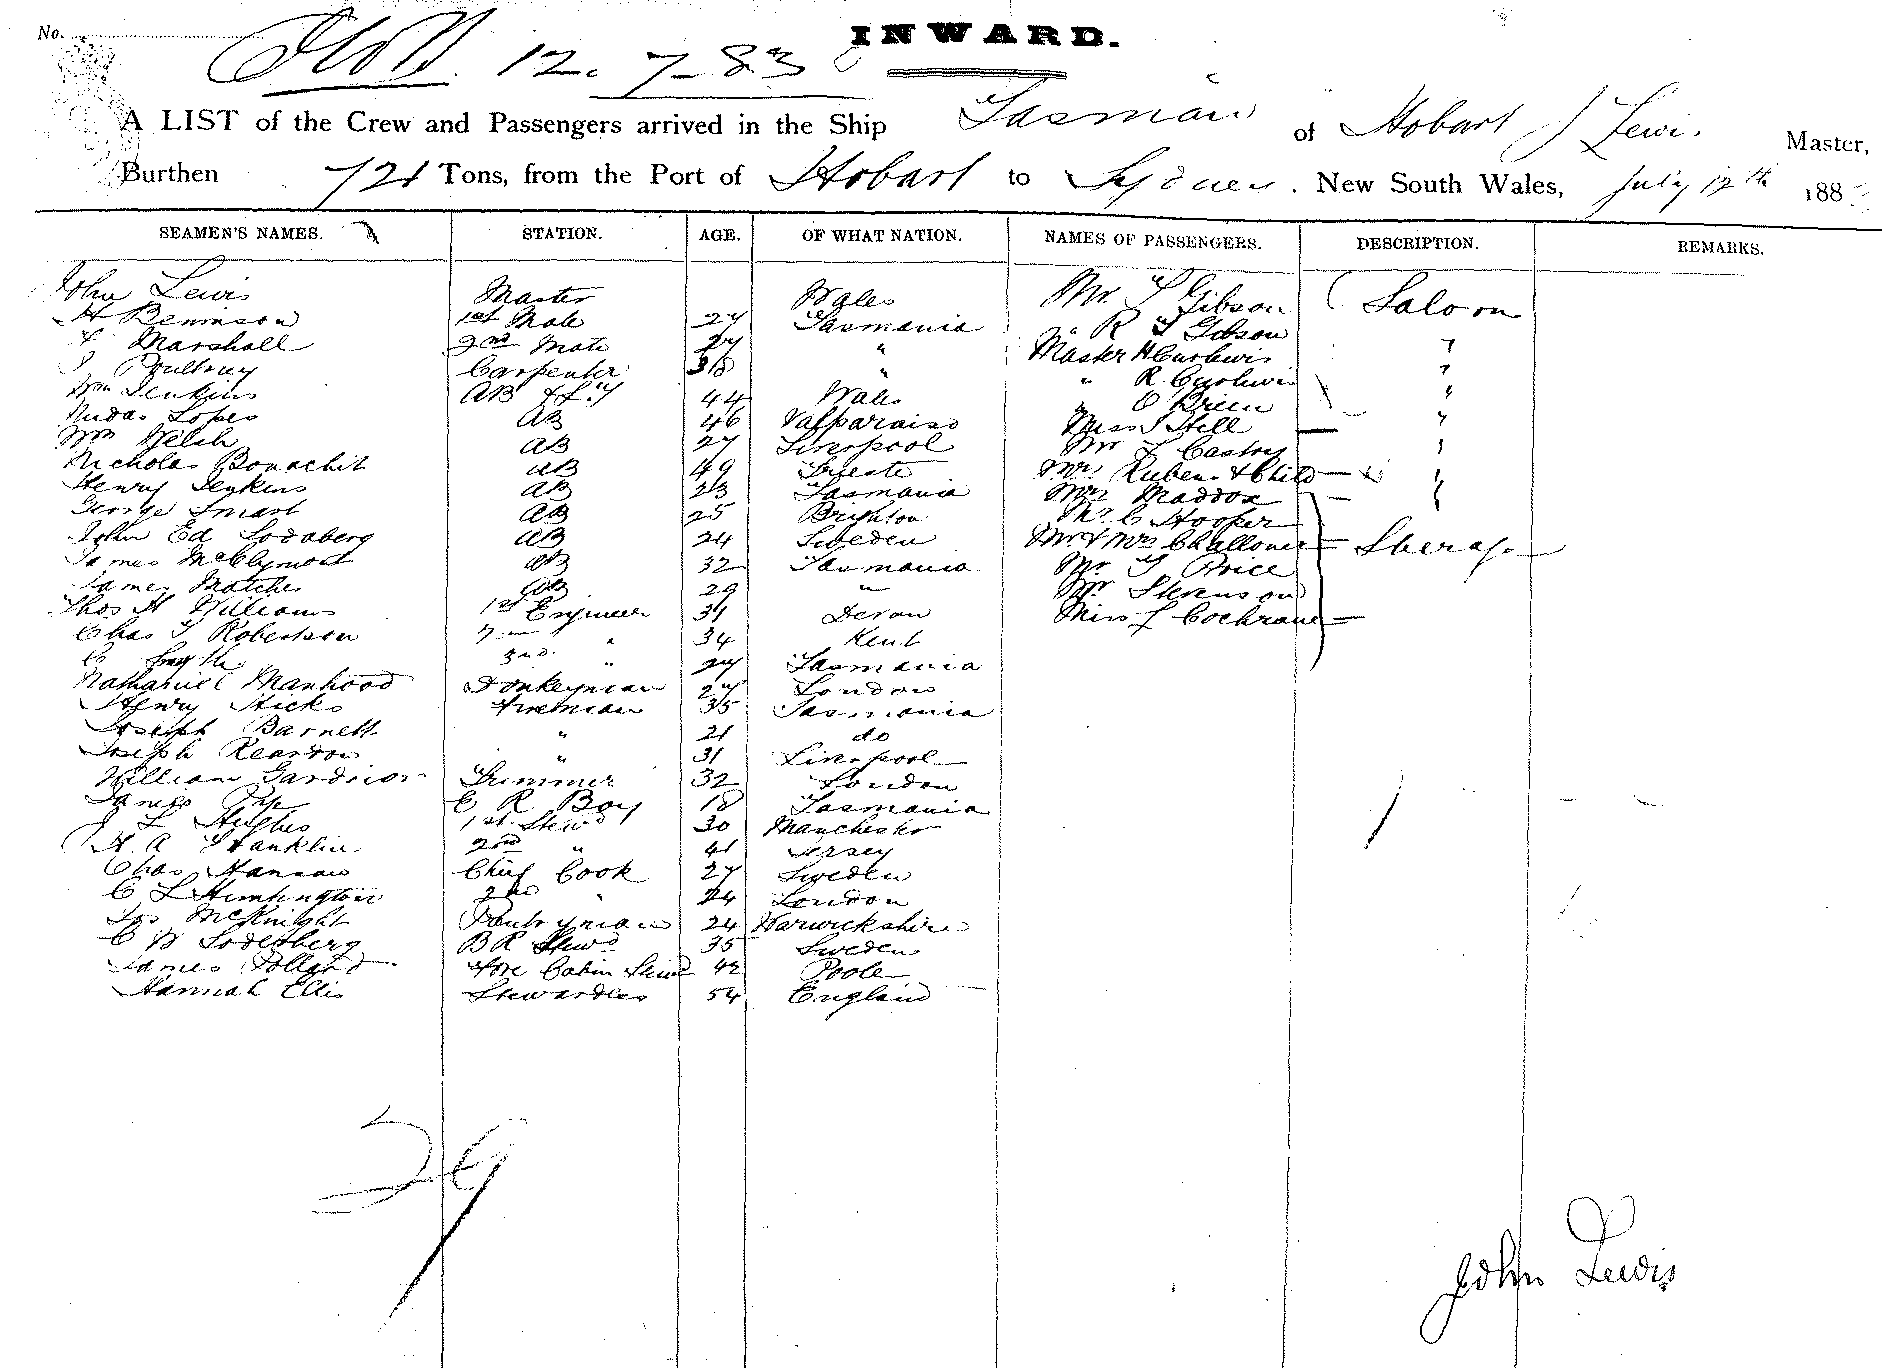 No.
12. 7-83
INWARD.
A LIST of the Crew and Passengers arrived in the Ship Tasman of Hobart J Lewis Master,
Burthen 721 Tons, from the Port of Hobart to Sydney. New South Wales, July 12th 188
SEAMEN'S NAMES. STATION. AGE. OF WHAT NATION. NAMES OF PASSENGERS. DESCRIPTION. REMARKS.
John Lewis Master Wales Mr Gibson Saloon
H Bennison 1st Mate 27 Tasmania " R Gibson "
Marshall 2nd Mate 27 " Master H Curlewis "
Carpenter 38 " " R Curlewis "
Wm Jenkins AB 44 Wales " O Brien "
Lopes AB 46 Valparaiso Miss Hill "
Wm Welch AB 27 Liverpool Mr Castry "
Nicholas Bonachit AB 49 Trieste Mrs Ruben & Child "
Henry Jenkins AB 23 Tasmania Mrs Maddox "
George Smart AB 25 Brighton Mr C Hooper
John Ed Sodaberg AB 24 Sweden Mr & Mrs Challoner Steerage
James McClymont AB 32 Tasmania Mr Price
James Matches AB 29 " Mr Stevenson
Thos H Williams 1st Engineer 31 Devon Miss Cochrane
Chas Robertson 2nd " 34 Kent
C Smyth 3rd " 27 Tasmania
Nathaniel Manhood Donkeyman 27 London
Henry Hicks Fireman 35 Tasmania
Joseph Barnett " 21 do
Joseph Reardon " 31 Liverpool
William Gardner Trimmer 32 London
James E R Boy 18 Tasmania
J L Hughes 1st Stewd 30 Manchester
H. A Franklin 2nd " 41 Jersey
Chas Hansen Chief Cook 27 Sweden
C L Huntington 2nd " 24 London
Jas McKnight Pantryman 24 Warwickshire
C W Soderberg B R Stewd 35 Sweden
James Pollard Fore Cabin Stewd 42 Poole
Hannah Ellis Stewardess 54 England
29
John Lewis